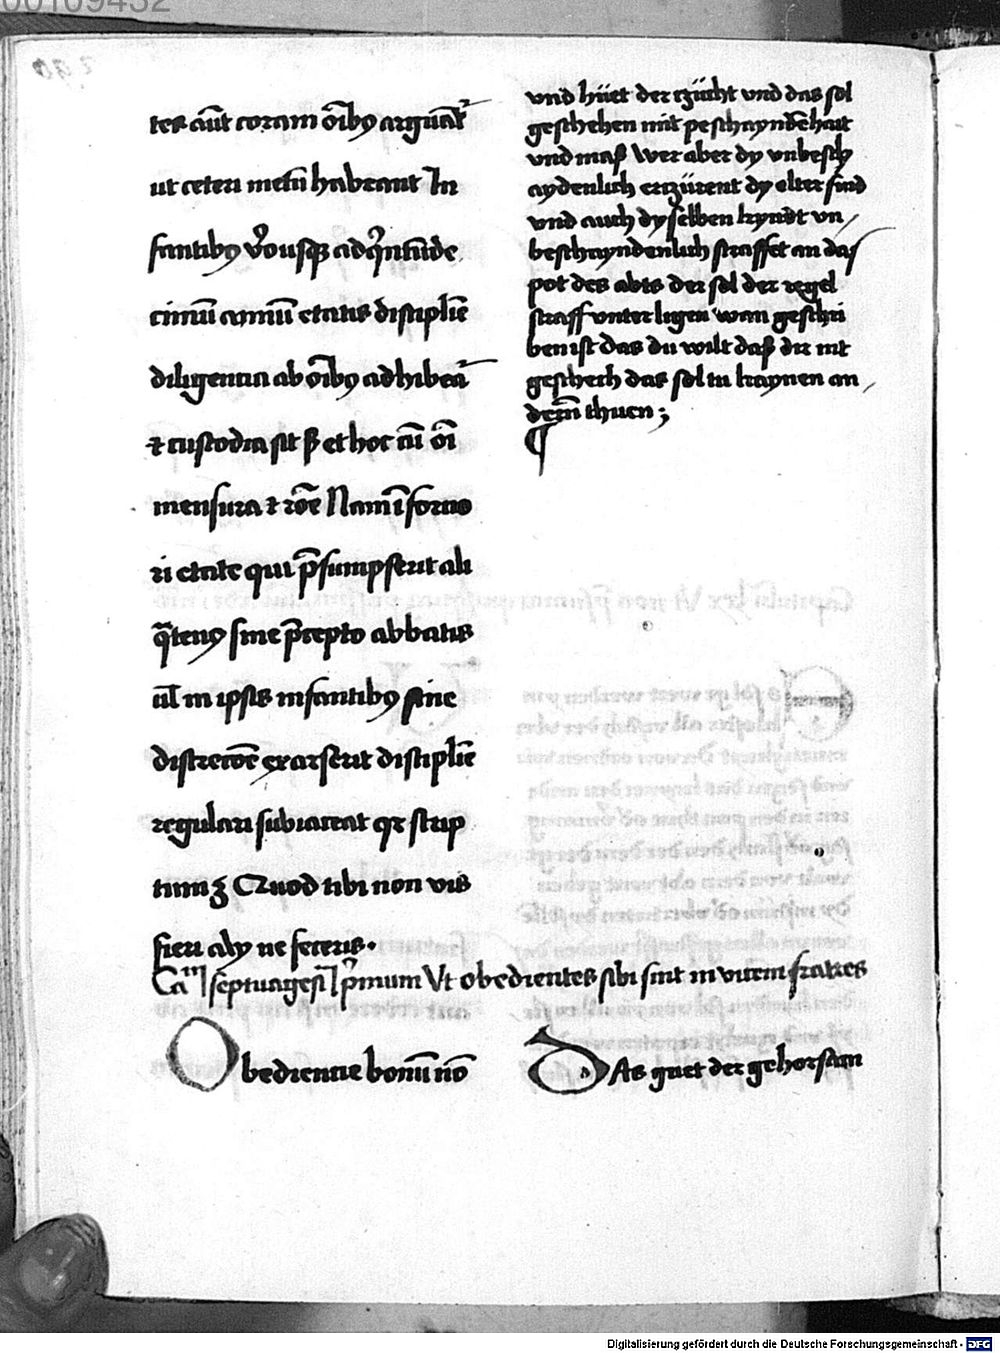 tes aūt coram om̄ibꝯ arguāt᷑
ut ceteri metū habeant In
fantibꝯ v̓o usqꝫ ad q̓ntūde
cimū annū etatis disciplīe
diligentia ab om̄ibꝯ adhibeat᷑
⁊ custodia sit ß et hoc cū om̄i
mensura ⁊ rōe Nam ī fortio
ri etate qui p̄sumpserit ali
q̄tenꝯ sine p̄cepto abbatis
aūt in ipsis infantibꝯ sine
discrecōe exarserit disciplīe
regulari subiaceat qꝛ scrip
tum ꝫ Quod tibi non vis
fieri alij ne feceris.
vnd hüet der zücht vnd das sol
geschehen mit peschaydēhait
vnd maß Wer aber dy vnbesch
aydenlich erzürent dy elter sind
vnd auch dy selben kyndt vn/
beschaydenlich straffet an das
pot des abts der sol der regel
straff vnterligen wan geschri
ben ist das du wilt daß dir nit
geschech das sol tu kaynen an/
derm̄ thuen ;
¶
Caᵐ septuagesī p̓mum Vt obedientes sibi sint in vicem fratres
Obediencie bonū nō
DAs guet der gehorsam
Digitalisierung gefördert durch die Deutsche Forschungsgemeinschaft - DFG